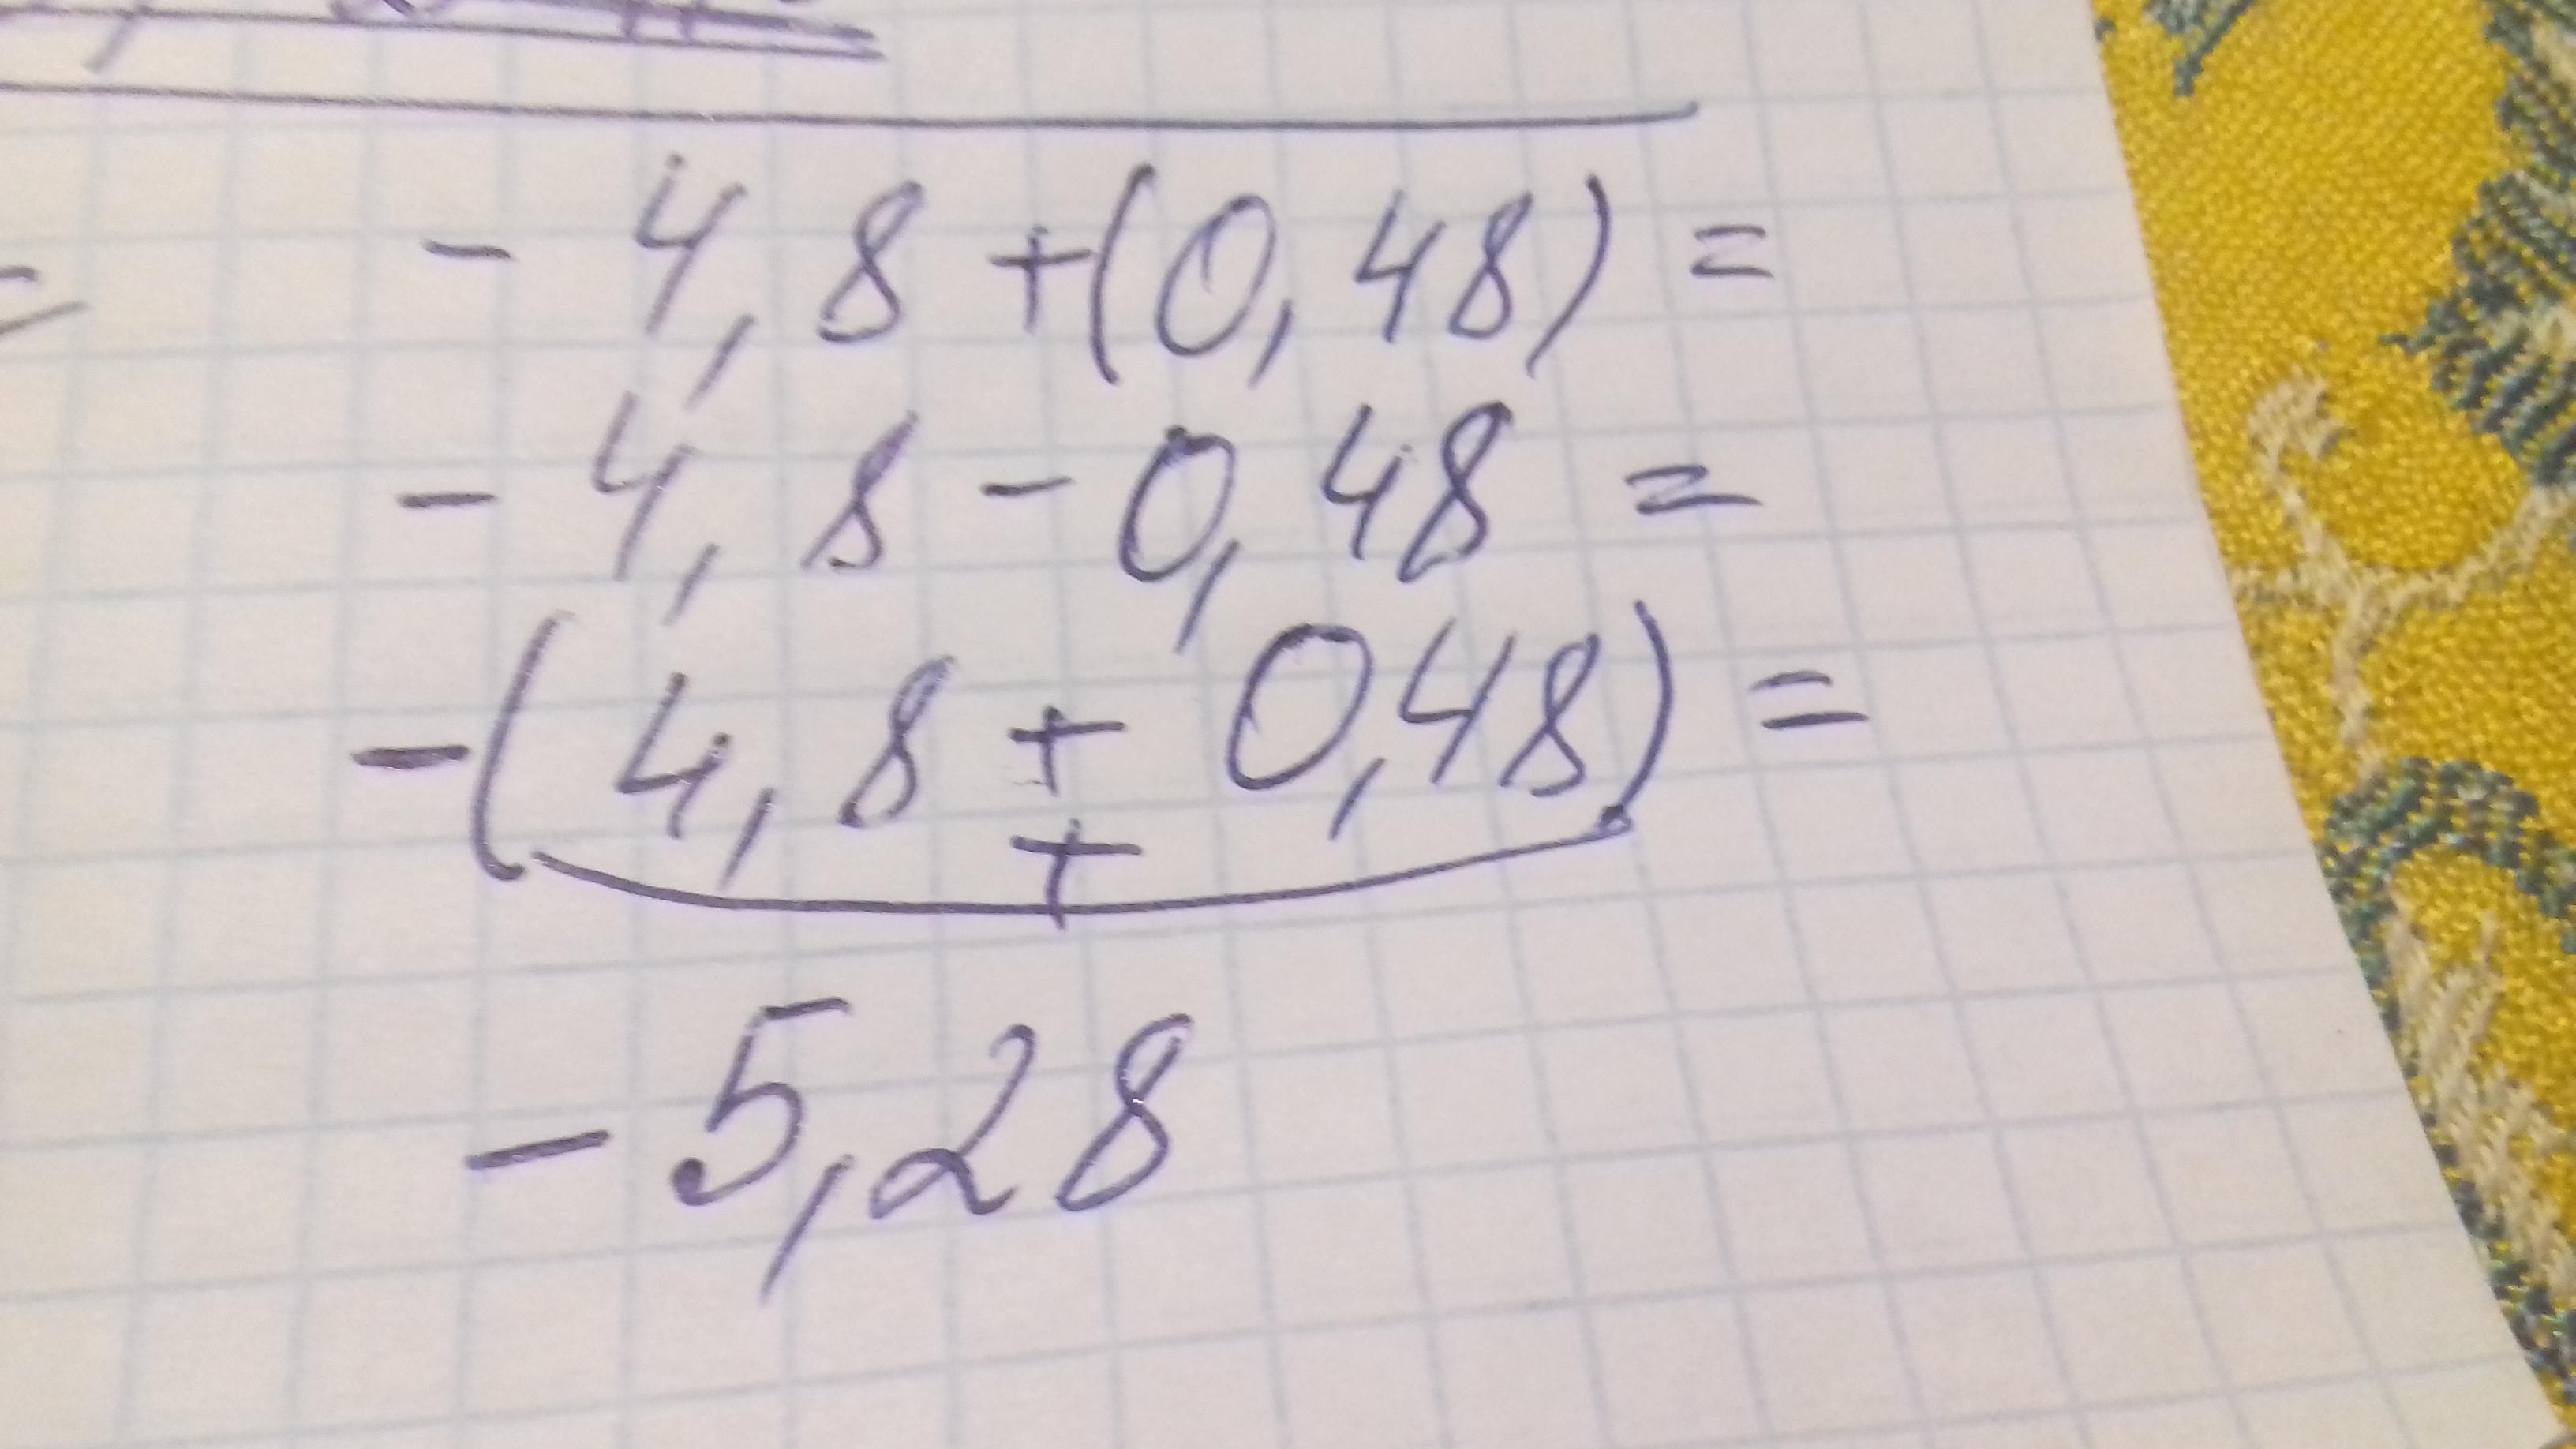 - 4,8 +(0,48) =
- 4,8 - 0,48 =
-( 4,8 + 0,48) =
+
- 5,28